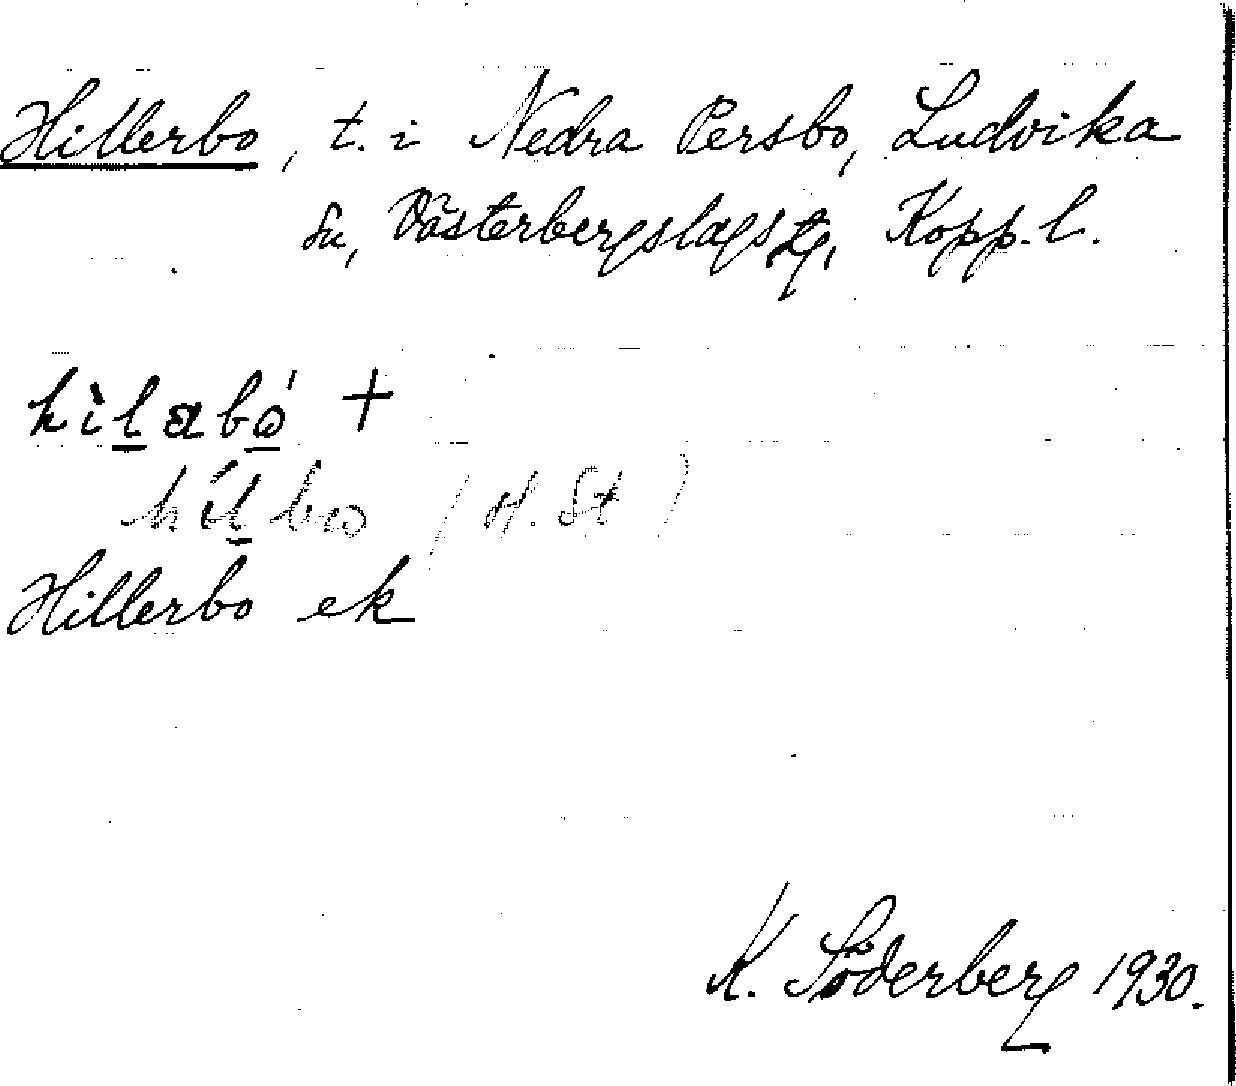 Hillerbo, t. i Nedra Persbo, Ludvika
sn, Västerbergslags tg, Kopp. l.
hìlabó +
hílbω (H. St)
Hillerbo ek
K. Söderberg 1930.